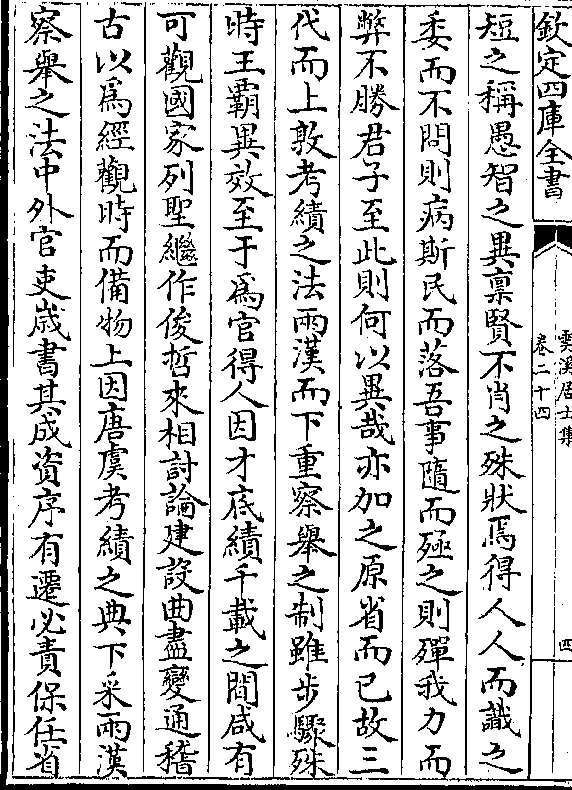 欽定四庫全書
雲溪居士集
卷二十四
四
短之稱愚智之異稟賢不肖之殊狀焉得人人而識之
委而不問則病斯民而落吾事隨而殛之則殫我力而
弊不勝君子至此則何以異哉亦加之原省而已故三
代而上敦考績之法兩漢而下重察舉之制雖步驟殊
時王霸異效至于為官得人因才底績千載之間咸有
可觀國家列聖繼作俊哲來相討論建設曲盡變通稽
古以為經觀時而備物上因唐虞考績之典下采兩漢
察舉之法中外官吏歲書其成資序有遷必責保任省